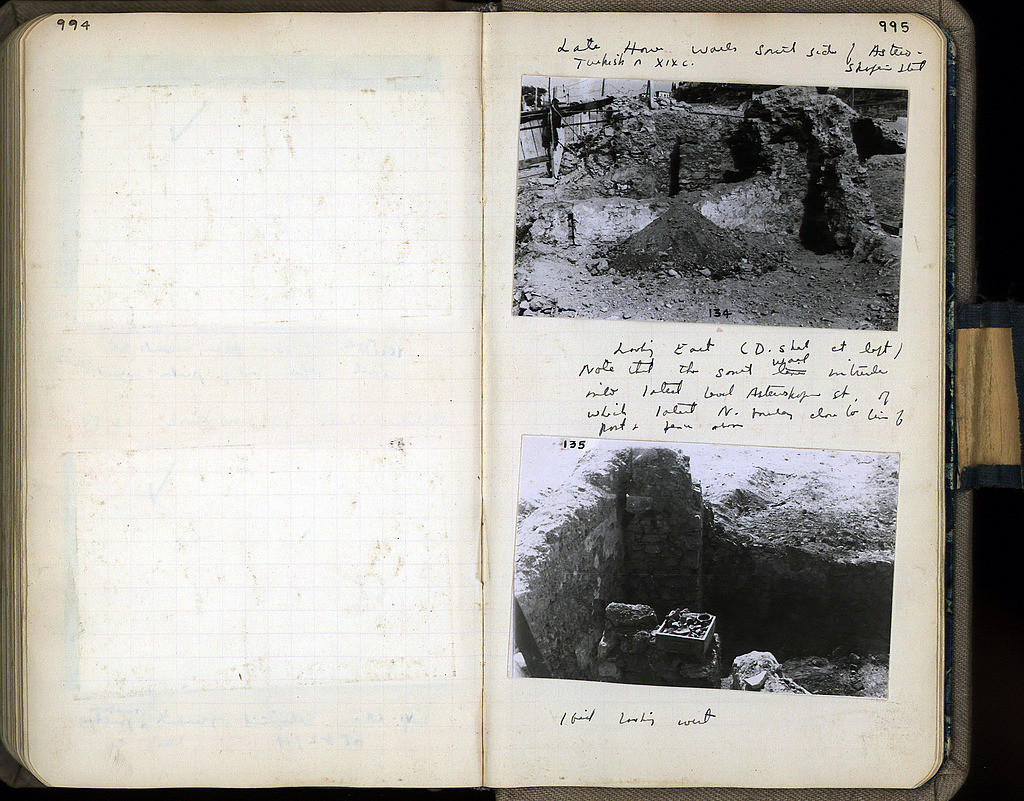 994
995
Late House walls South side of Astero-
Turkish or XIX c. skopeiou Street
134
Looking East (D. shed at left)
Note that the south wall intrude
into latest level Asteroskopeiou St. of
which latest N. boundary close to line of
post &
135
Ibid looking west